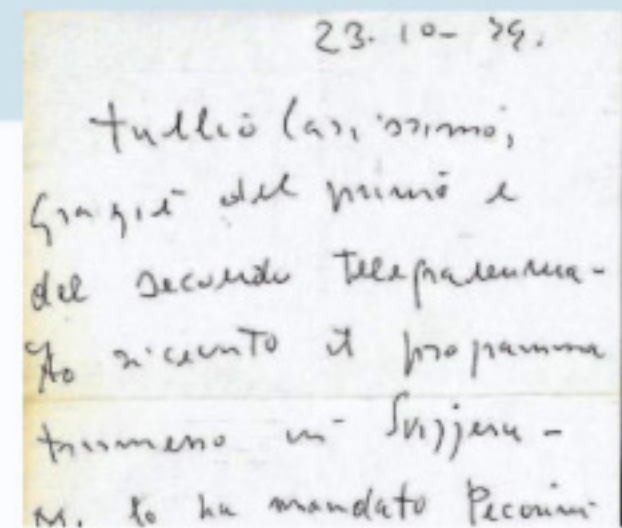 23-10-79.
Tullio Carissimo,
Grazie del primo e
del secondo telegramma-
Ho ricevuto il programma
trasmesso in Svizzera-
M. lo ha mandato Pecorini